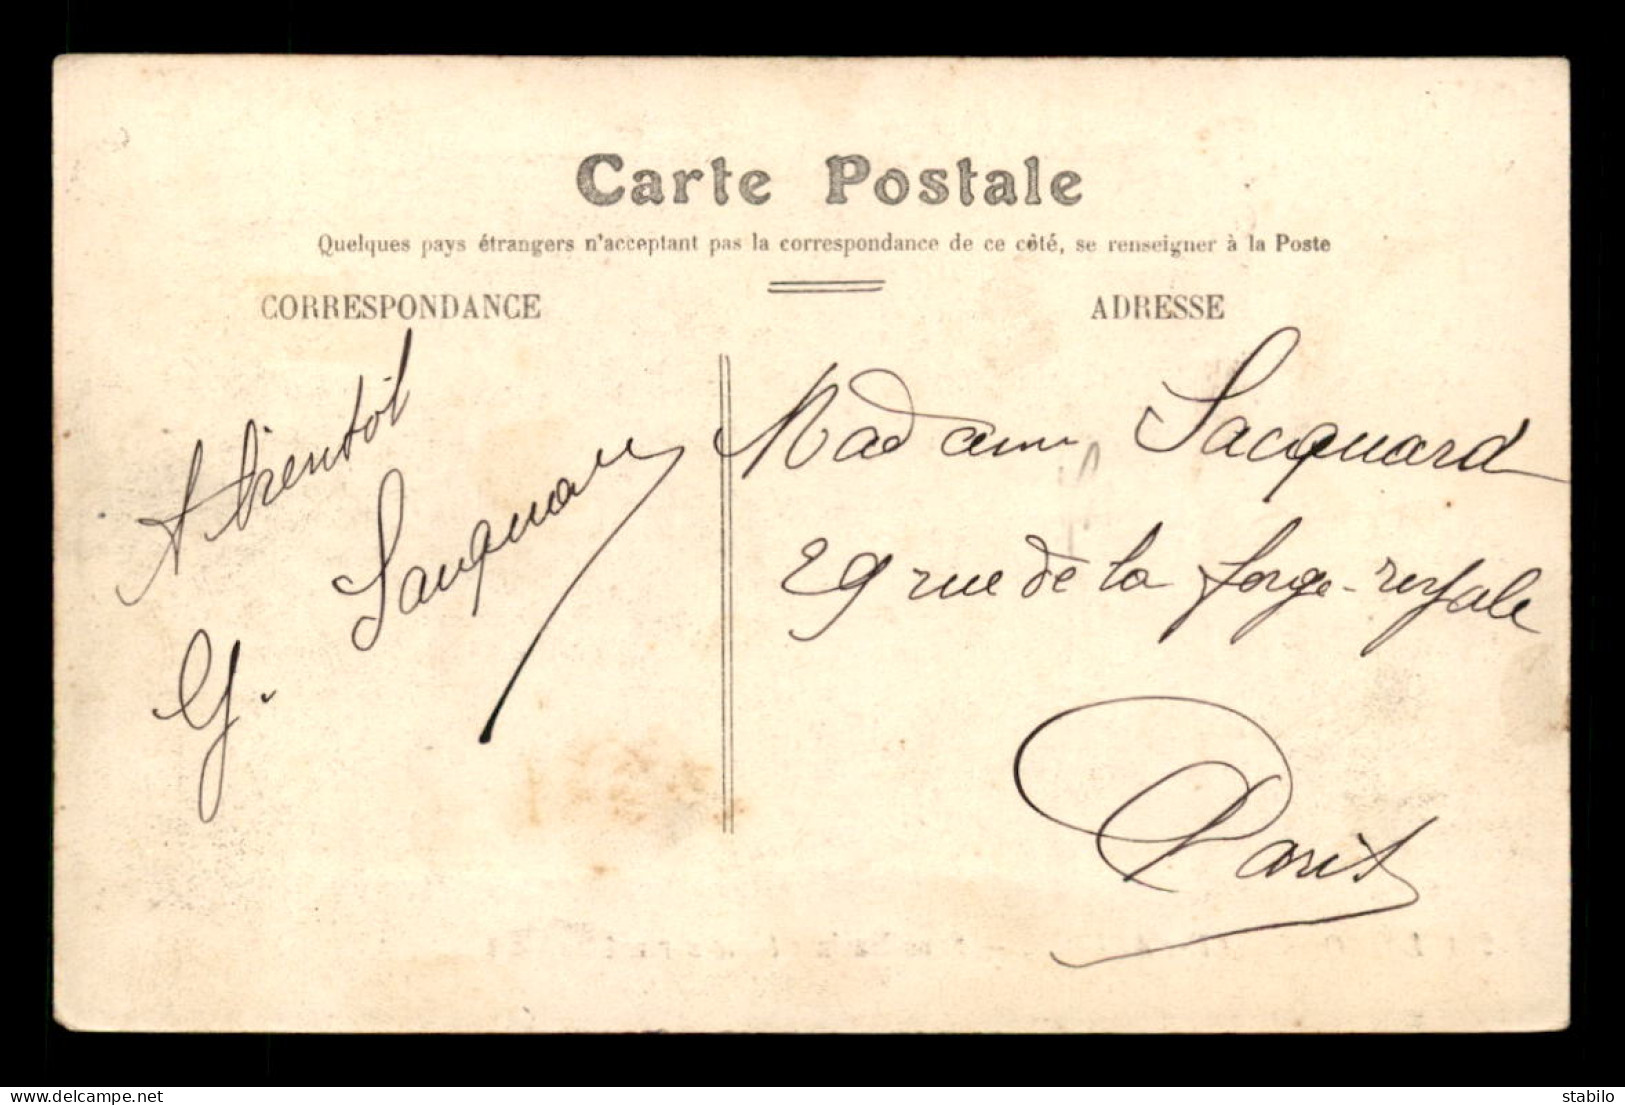 Carte Postale
Quelques pays étrangers n'acceptant pas la correspondance de ce côté, se renseigner à la Poste
CORRESPONDANCE
A bientôt
G. Jacquard
ADRESSE
Madame Jacquard
29 rue de la forge-royale
Paris
DELCAMPE.NET
stabilo